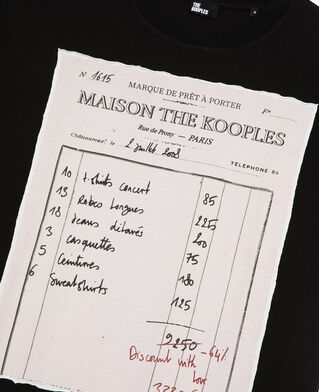 THE
KOOPLES
N° 1615
MARQUE DE PRÊT À PORTER
MAISON THE KOOPLES
Rue de Prony — PARIS
le 2 juillet 2008
TÉLÉPHONE
10 t-shirts concert 85
13 Robes longues 225
18 Jeans délavés 200
3 casquettes 75
5 Ceintures 180
6 Sweatshirts 125
9250 -64%
Discount with
love